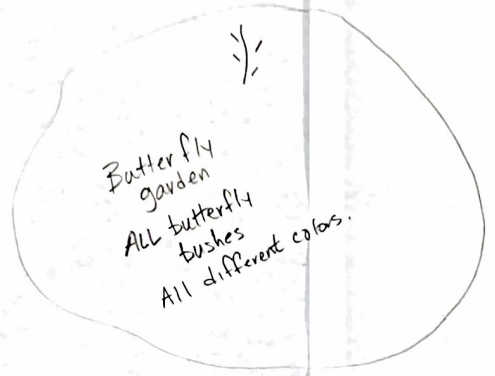 Butterfly
garden
ALL butterfly
bushes
All different colors.